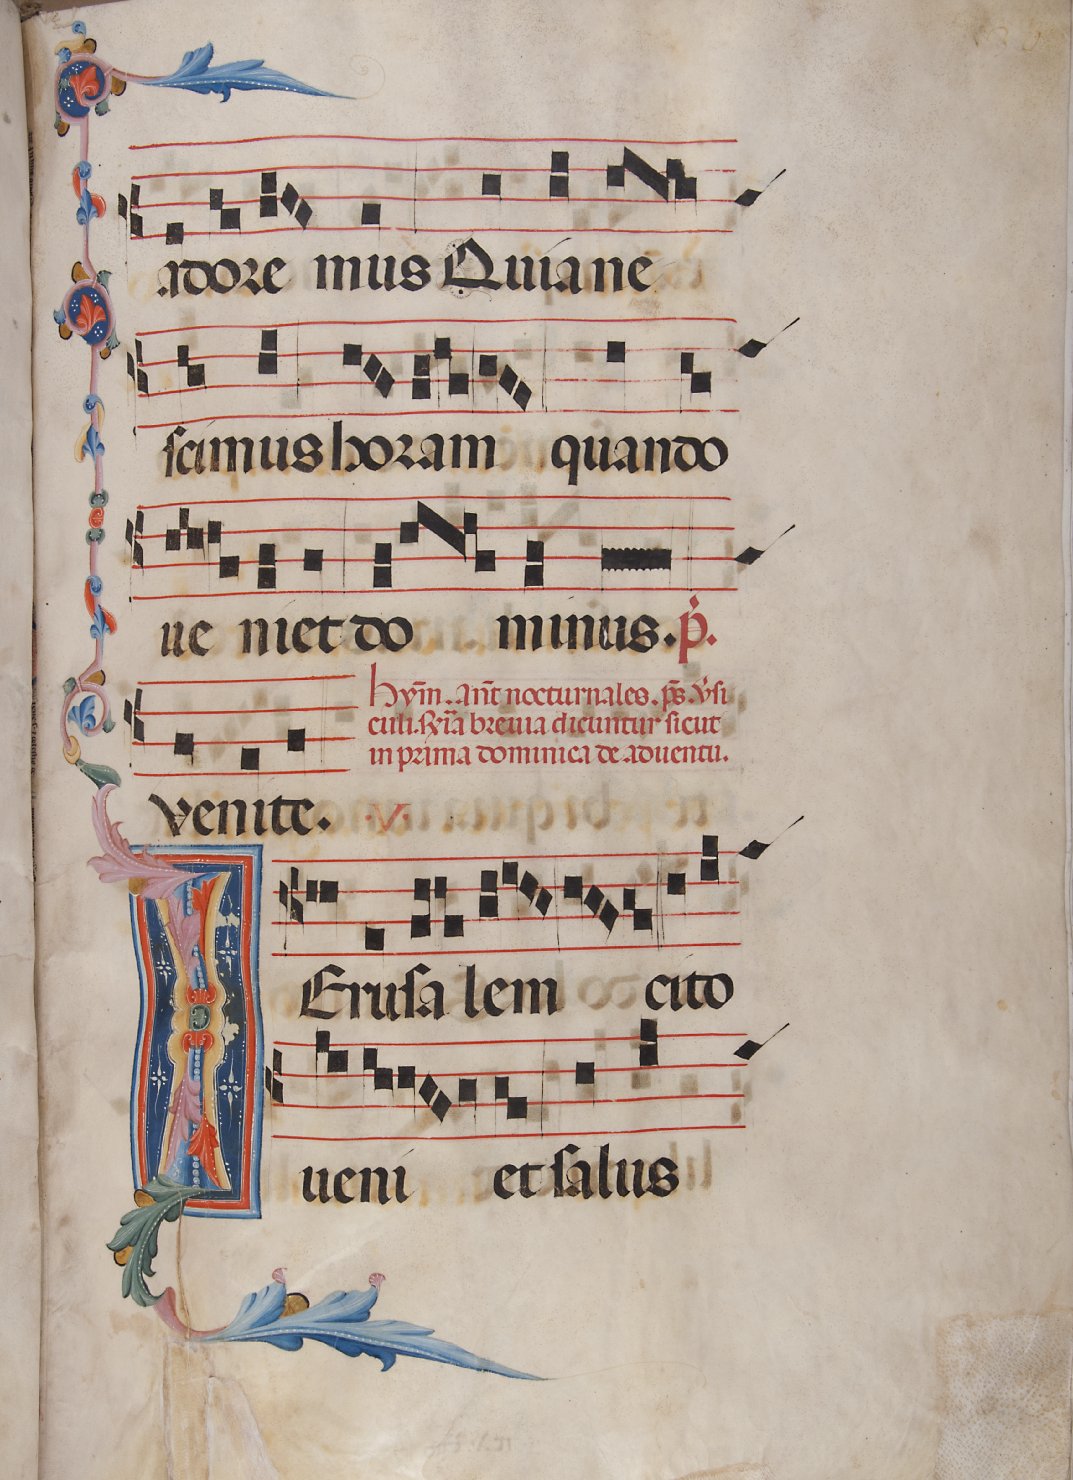 adore mus Quia ne
scimus horam quando
ue niet do minus. p̄.
Hym̄. an̄t nocturnales. p̄s. v̄si
culi. R̄ia breuia dicuntur sicut
in prima dominica de aduentu.
venite. .v.
IErusa lem cito
ueni et salus